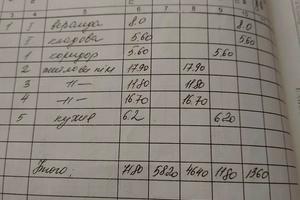 3 4 5 6 7 8 9
1 I веранда 8.0 8.0
II кладова 5.60 5.60
1 коридор 5.60 5.60
2 житлова кім 17.90 17.90
3 —"— 11.80 11.80
4 —"— 16.70 16.70
5 кухня 6.2 6.20
Итого: 7180 5820 4640 1180 1360